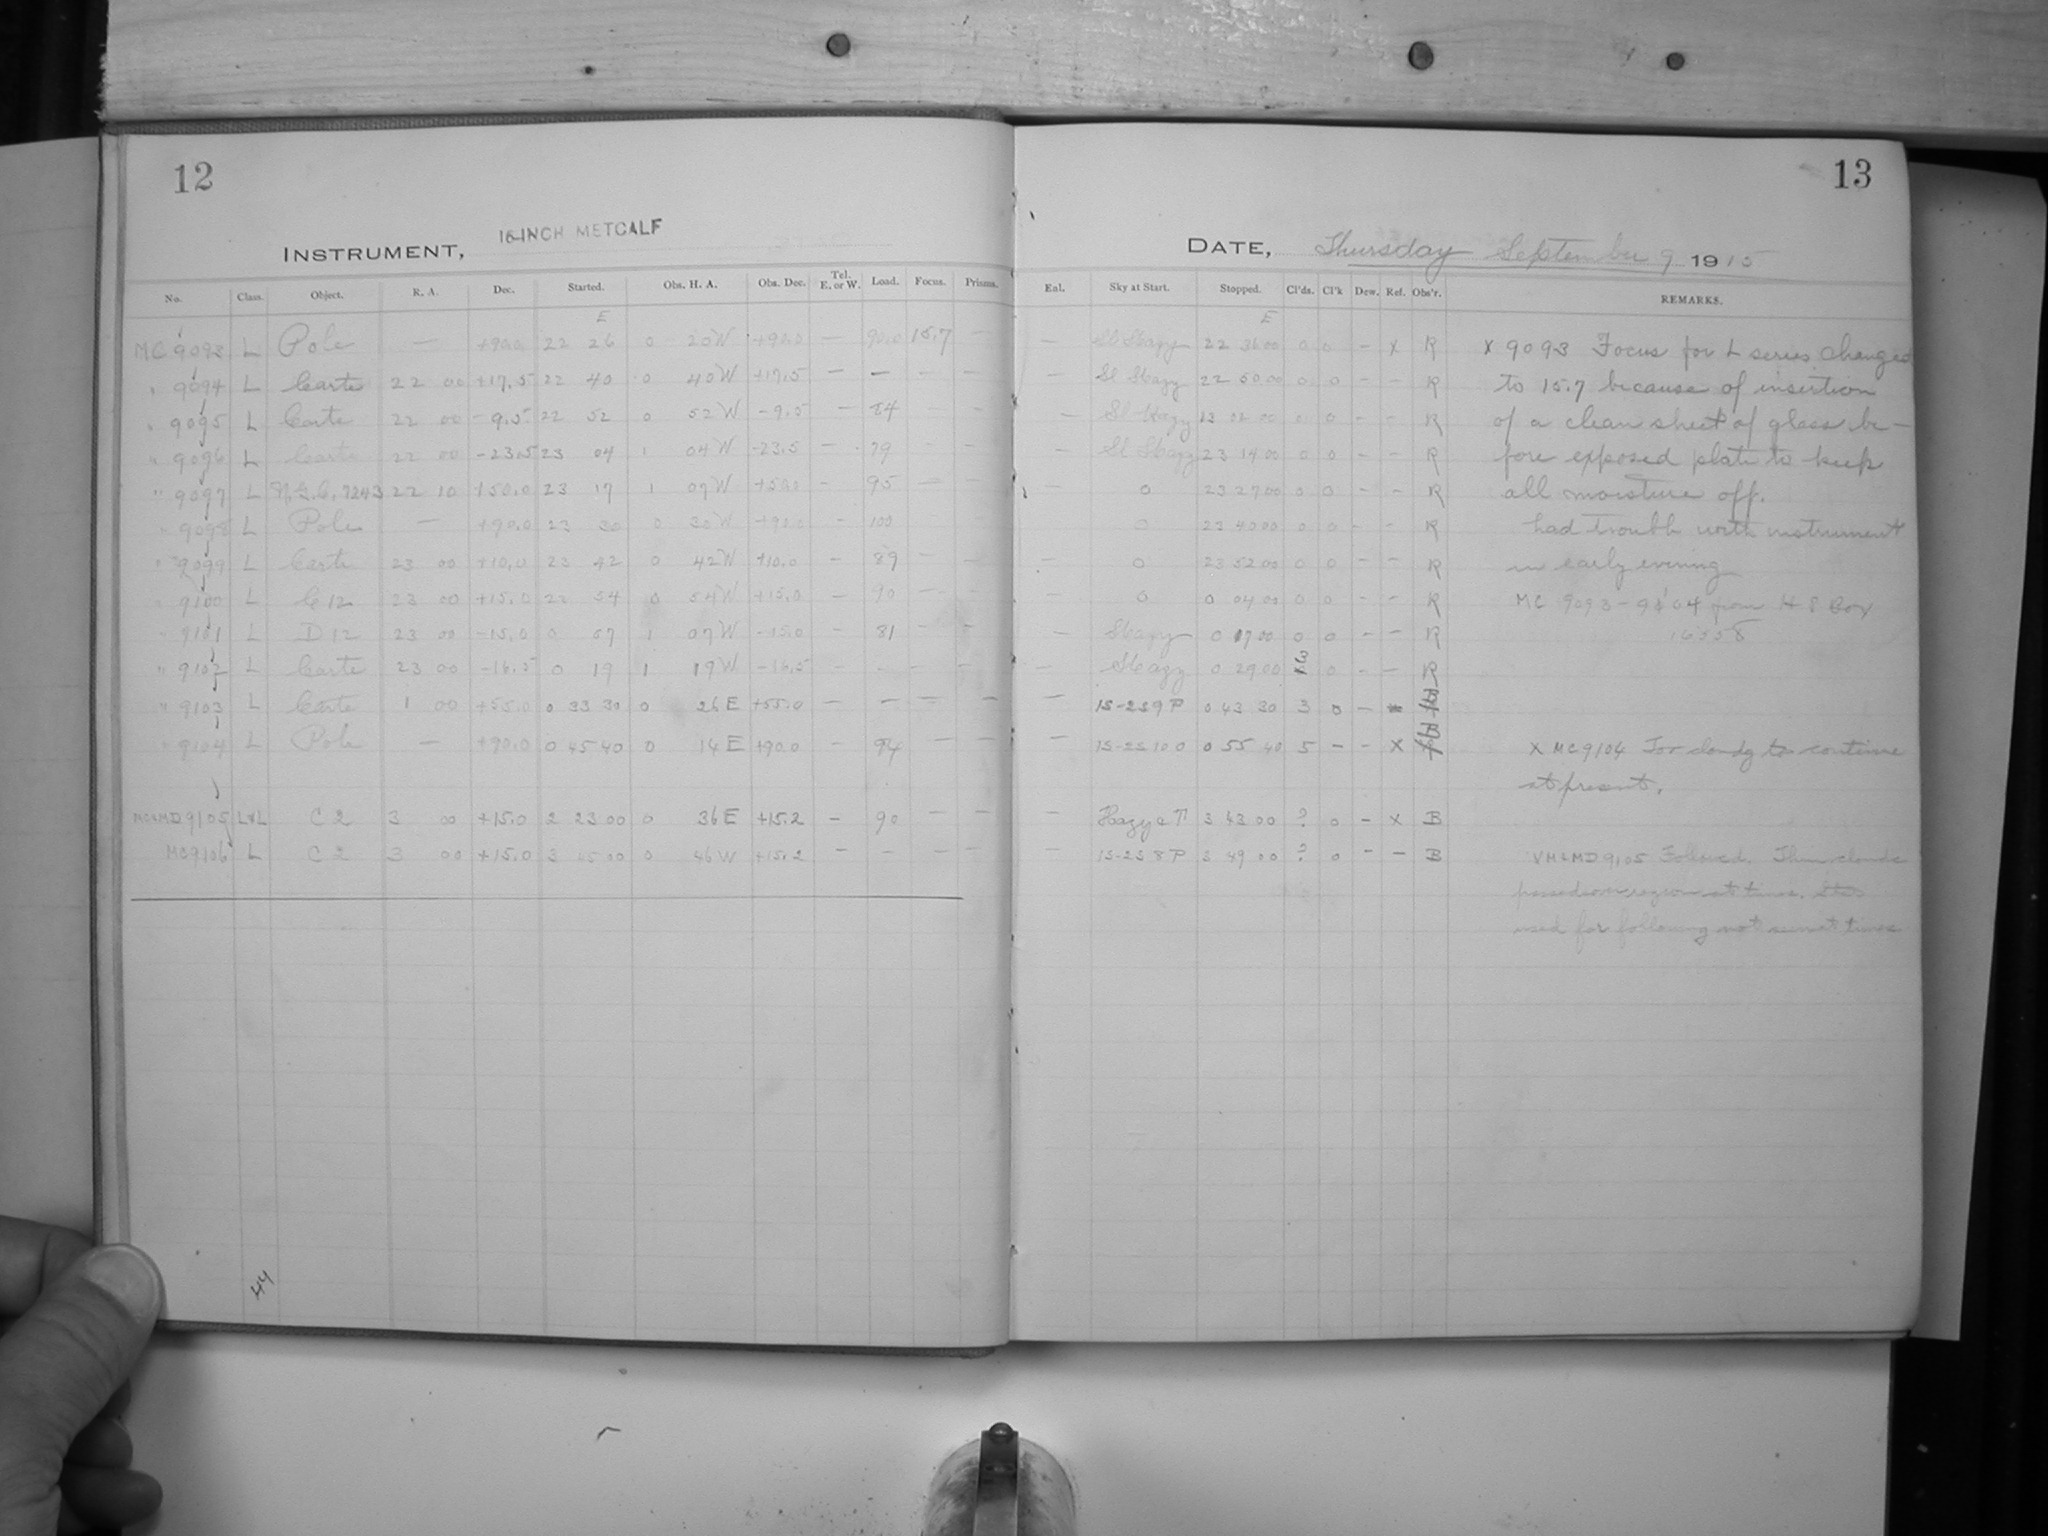 12
INSTRUMENT, 16-INCH METCALF
No. Class. Object. R. A. Dec. Started. Obs. H. A. Obs. Dec. Tel. E. or W. Load. Focus. Prisms.
E
MC 9093 L Pole — +90.0 22 26 0 20 W +90.0 — 90.0 15.7 —
" 9094 L Carte 22 00 +17.5 22 40 0 40 W +17.5 — — — —
" 9095 L Carte 22 00 -9.5 22 52 0 52 W -9.5 — 84 — —
" 9096 L Carte 22 00 -23.5 23 04 1 04 W -23.5 — 79 — —
" 9097 L N.G.C. 7243 22 10 +50.0 23 17 1 07 W +50.0 — 95 — —
" 9098 L Pole — +90.0 23 30 0 30 W +90.0 — 100
" 9099 L Carte 23 00 +10.0 23 42 0 42 W +10.0 — 89 — —
" 9100 L C 12 23 00 +15.0 22 54 0 54 W +15.0 — 90 — —
" 9101 L D 12 23 00 -15.0 0 07 1 07 W -15.0 — 81 — —
" 9102 L Carte 23 00 -16.5 0 19 1 19 W -16.5 — — — —
" 9103 L Carte 1 00 +55.0 0 33 30 0 26 E +55.0 — — — —
" 9104 L Pole — +90.0 0 45 40 0 14 E +90.0 — 94 — —
MC&MD 9105 L&L C 2 3 00 +15.0 2 23 00 0 36 E +15.2 — 90 — —
MC 9106 L C 2 3 00 +15.0 3 45 00 0 46 W +15.2 — — — —
44
13
DATE, Thursday September 9 1915
Eal. Sky at Start. Stopped. Cl'ds. Cl'k Dew. Ref. Obs'r. REMARKS.
E
— Sl Hazy 22 36 00 0 0 — x R x 9093 Focus for L series changed
— Sl Hazy 22 50 00 0 0 — — R to 15.7 because of insertion
— Sl Hazy 13 02 00 0 0 — — R of a clean sheet of glass be-
— Sl Hazy 23 14 00 0 0 — — R fore exposed plate to keep
— 0 23 27 00 0 0 — — R all moisture off.
0 23 40 00 0 0 — — R had trouble with instrument
— 0 23 52 00 0 0 — — R in early evening
— 0 0 04 00 0 0 — — R MC 9093-9104 from H S Box
— Hazy 0 17 00 0 0 — — R 16558
— Hazy 0 29 00 3 0 — — R
— 1S-2S9P 0 43 30 3 0 — B
— 1S-2S10 0 0 55 40 5 — — x B x MC9104 Too cloudy to continue
at present.
— Hazy & P 3 43 00 ? 0 — x B
— 1S-2S8P 3 49 00 ? 0 — — B MC&MD 9105 Followed. Thin clouds
passed over region at times.
used for following not seen at times